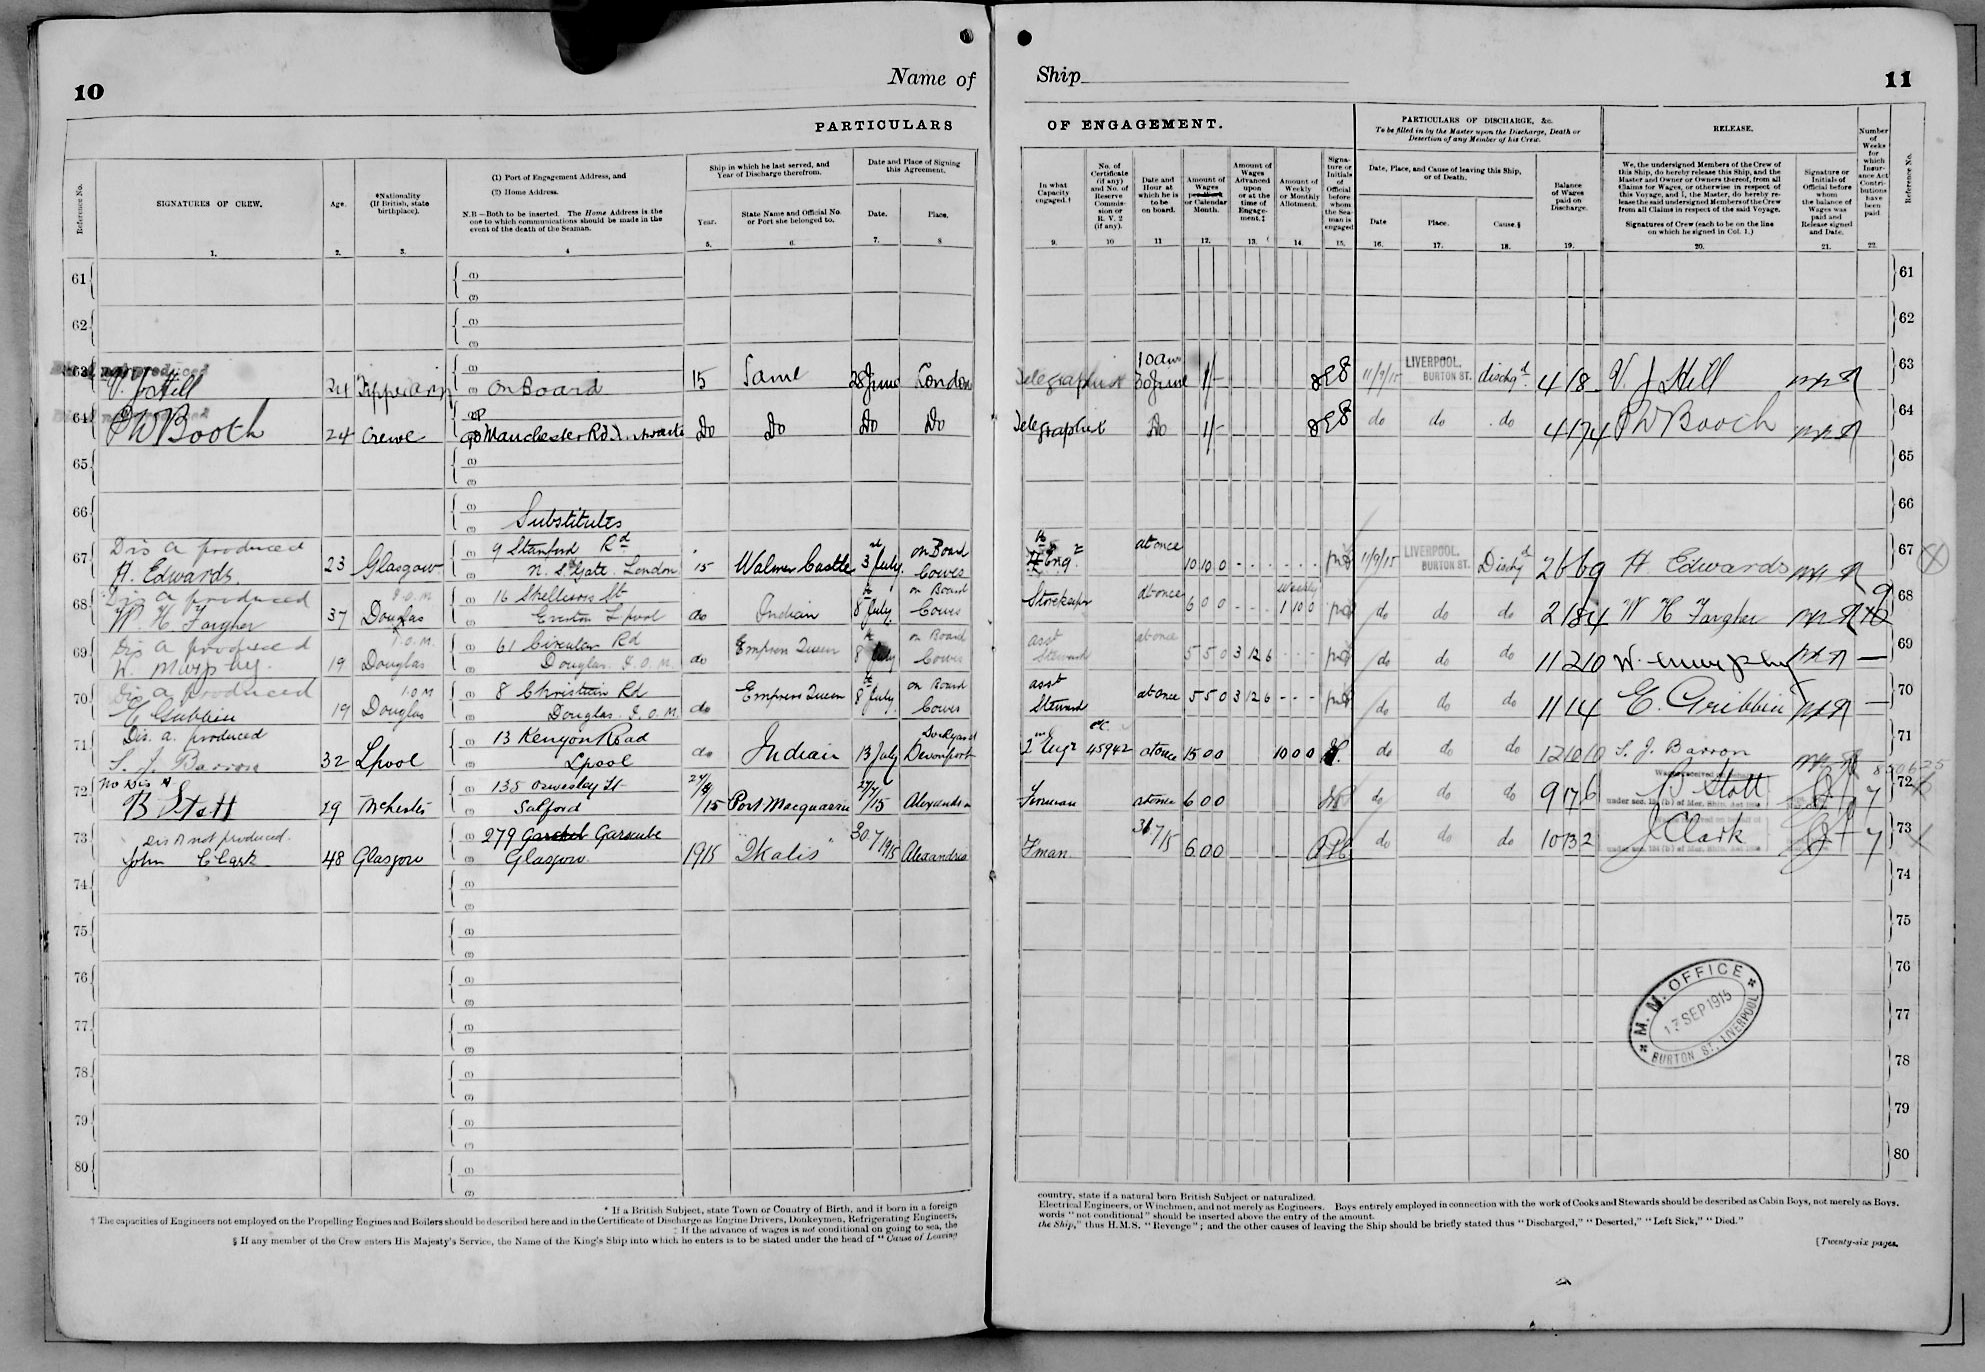 10
Name of
Ship
11
PARTICULARS
OF ENGAGEMENT.
PARTICULARS OF DISCHARGE, &c.
To be filled in by the Master upon the Discharge, Death or
Desertion of any Member of his Crew.
RELEASE.
Number of Weeks for which Insurance Act Contributions have been paid
Reference No.
SIGNATURES OF CREW.
1.
Age.
2.
*Nationality
(If British, state
birthplace).
3.
(1) Port of Engagement Address, and
(2) Home Address.
N.B.—Both to be inserted. The Home Address is the
one to which communications should be made in the
event of the death of the Seaman.
4
Ship in which he last served, and
Year of Discharge therefrom.
Year.
5.
State Name and Official No.
or Port she belonged to.
6.
Date and Place of Signing
this Agreement.
Date.
7.
Place.
8
In what
Capacity
engaged.†
9.
No. of
Certificate
(if any)
and No. of
Reserve
Commission or
R. V. 2
(if any).
10
Date and
Hour at
which he is
to be
on board.
11
Amount of
Wages
or Calendar
Month.
12.
Amount of
Wages
Advanced
upon
or at the
time of
Engagement.‡
13.
Amount of
Weekly
or Monthly
Allotment.
14.
Signature or
Initials
of
Official
before
whom
the Seaman is
engaged
15.
Date, Place, and Cause of leaving this Ship,
or of Death.
Date
16.
Place.
17.
Cause.§
18.
Balance
of Wages
paid on
Discharge.
19.
We, the undersigned Members of the Crew of
this Ship, do hereby release this Ship, and the
Master and Owner or Owners thereof, from all
Claims for Wages, or otherwise in respect of
this Voyage, and I, the Master, do hereby release the said undersigned Members of the Crew
from all Claims in respect of the said Voyage.
Signatures of Crew (each to be on the line
on which he signed in Col. 1.)
20.
Signature or
Initials of
Official before
whom
the balance of
Wages was
paid and
Release signed
and Date.
21.
22.
Reference No.
61 (1) (2) 61
62 (1) (2) 62
63 V. J Hill 24 Tipperary on Board 15 Same 28 June London Telegraphist 10 am 30 June 1/- 11/9/15 LIVERPOOL. BURTON ST. dischgd 4 18 V. J Hill 63
64 P W Booth 24 Crewe Manchester Rd Do Do Do Do Telegraphist Do 1/- do do do 4 17 4 P W Booth 64
65 (1) (2) 65
66 Substitutes 66
Dis a produced
67 H. Edwards. 23 Glasgow 9 Stanford Rd N. S Gate London 15 Walmer Castle 3rd July on Board Cowes Engr at once 10 10 0 11/9/15 LIVERPOOL. BURTON ST. Dischgd 26 6 9 H Edwards 67
Dis a produced
68 W. H. Fargher 37 Douglas I.O.M 16 Skellicorn St Everton L'pool do Indian 8th July on Board Cowes Storekeeper at once 6 0 0 Weekly 1 10 0 do do do 2 18 4 W H Fargher 68
Dis a produced
69 W. Murphy. 19 Douglas I.O.M. 61 Circular Rd Douglas. I.O.M. do Empress Queen 8th July on Board Cowes asst Steward at once 5 5 0 3 12 6 do do do 11 2 10 W. Murphy 69
Dis a produced
70 E Gribbin 19 Douglas I.O.M 8 Christian Rd Douglas. I.O.M. do Empress Queen 8th July on Board Cowes asst Steward at once 5 5 0 3 12 6 do do do 11 1 4 E. Gribbin 70
Dis. a. produced
71 S. J. Barron 32 L'pool 13 Kenyon Road L'pool do Indian 13 July Dockyard Devonport 2nd Engr 45942 at once 15 0 0 10 0 0 do do do 12 10 10 S. J. Barron 71
No Dis A
72 B Stott 29 M'chester 135 Salford /15 Port Macquarie 27/7/15 Alexandria Fireman at once 6 0 0 do do do 9 17 6 B Stott 7 72
Dis A not produced.
73 John Clark 48 Glasgow 279 Garscube Glasgow. 1915 "Ikalis" 30/7/1915 Alexandria Fman 6 0 0 do do do 10 13 2 J Clark 7 73
74 (1) (2) 74
75 (1) (2) 75
76 (1) (2) 76
77 (1) (2) 77
78 (1) (2) 78
79 (1) (2) 79
80 (1) (2) 80
M. M. OFFICE
17 SEP 1915
BURTON ST. LIVERPOOL
* If a British Subject, state Town or Country of Birth, and if born in a foreign
country, state if a natural born British Subject or naturalized.
† The capacities of Engineers not employed on the Propelling Engines and Boilers should be described here and in the Certificate of Discharge as Engine Drivers, Donkeymen, Refrigerating Engineers,
Electrical Engineers, or Winchmen, and not merely as Engineers. Boys entirely employed in connection with the work of Cooks and Stewards should be described as Cabin Boys, not merely as Boys.
‡ If the advance of wages is not conditional on going to sea, the
words "not conditional" should be inserted above the entry of the amount.
§ If any member of the Crew enters His Majesty's Service, the Name of the King's Ship into which he enters is to be stated under the head of "Cause of Leaving
the Ship," thus H.M.S. "Revenge"; and the other causes of leaving the Ship should be briefly stated thus "Discharged," "Deserted," "Left Sick," "Died."
[Twenty-six pages.